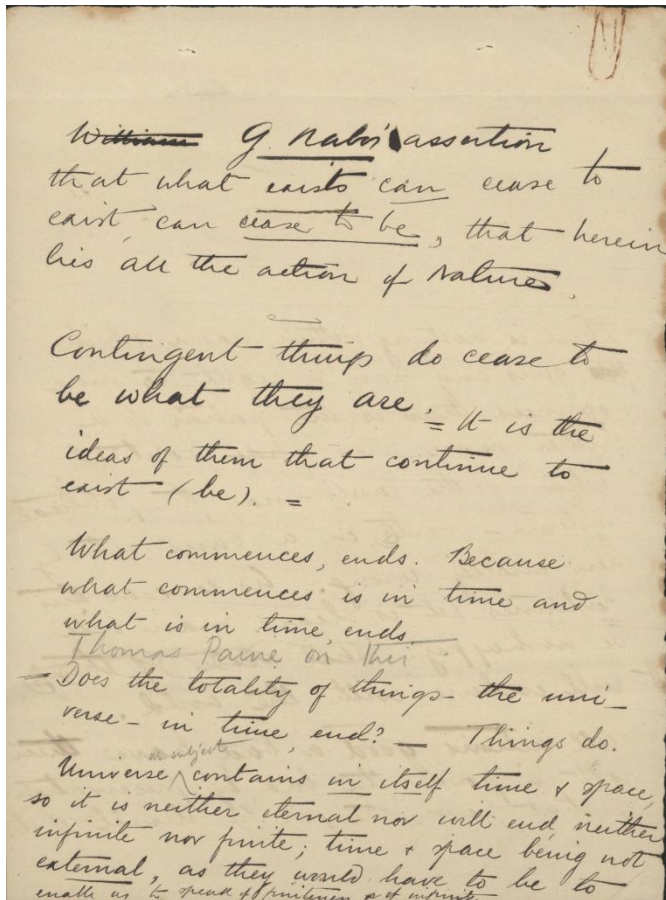 William G. Nabor's assertion
that what exists can cease to
exist, can cease to be, that herein
lies all the action of Nature.
Contingent things do cease to
be what they are. = It is the
ideas of them that continue to
exist (be). =
What commences, ends. Because
what commences is in time and
what is in time, ends.
Thomas Paine on this
- Does the totality of things - the uni-
verse - in time, end? - Things do.
as subject
Universe contains in itself time & space,
so it is neither eternal nor will end, neither
infinite nor finite; time & space being not
external, as they would have to be to
enable us to speak of finiteness & of infinite